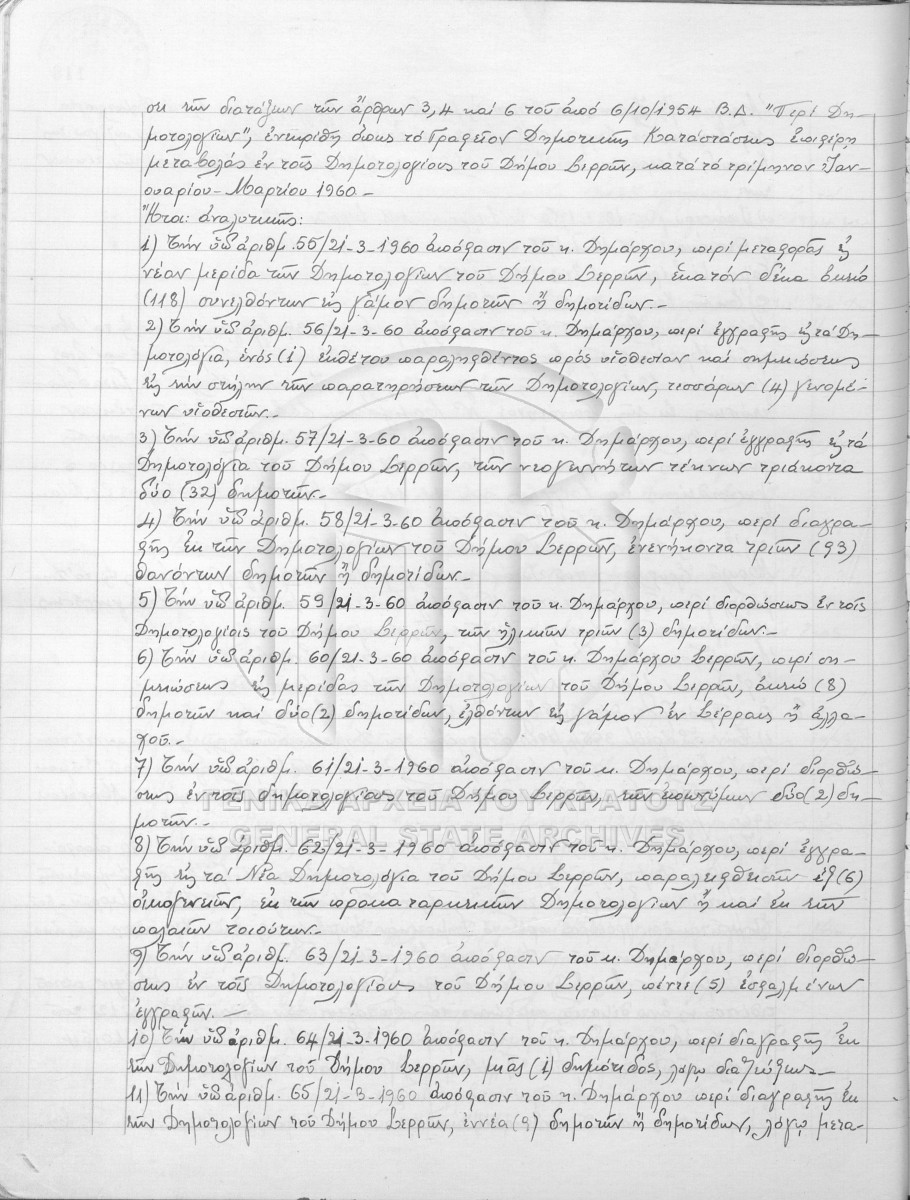 σει τῶν διατάξεων τῶν ἄρθρων 3, 4 καί 6 τοῦ ἀπό 6/10/1954 Β.Δ. "Περί Δη-
μοτολογίων", ἐνεκρίθη ὅπως τό Γραφεῖον Δημοτικῆς Καταστάσεως ἐπιφέρῃ
μεταβολάς ἐν τοῖς Δημοτολογίοις τοῦ Δήμου Σερρῶν, κατά τό τρίμηνον Ἰαν-
ουαρίου - Μαρτίου 1960.-
Ἤτοι: ἀναλυτικῶς:
1) Τήν ὑπ' ἀριθμ. 55/21-3-1960 ἀπόφασιν τοῦ κ. Δημάρχου, περί μεταφορᾶς εἰς
νέαν μερίδα τῶν Δημοτολογίων τοῦ Δήμου Σερρῶν, ἑκατόν δέκα ὀκτώ
(118) συνελθόντων εἰς γάμον δημοτῶν ἤ δημοτίδων.-
2) Τήν ὑπ' ἀριθμ. 56/21-3-60 ἀπόφασιν τοῦ κ. Δημάρχου, περί ἐγγραφῆς εἰς τά Δη-
μοτολόγια, ἑνός (1) ἐκθέτου παραληφθέντος πρός υἱοθεσίαν καί σημειώσεως
εἰς τήν στήλην τῶν παρατηρήσεων τῶν Δημοτολογίων, τεσσάρων (4) γενομέ-
νων υἱοθεσιῶν.-
3) Τήν ὑπ' ἀριθμ. 57/21-3-60 ἀπόφασιν τοῦ κ. Δημάρχου, περί ἐγγραφῆς εἰς τά
Δημοτολόγια τοῦ Δήμου Σερρῶν, τῶν νεογεννήτων τέκνων τριάκοντα
δύο (32) δημοτῶν.-
4) Τήν ὑπ' ἀριθμ. 58/21-3-60 ἀπόφασιν τοῦ κ. Δημάρχου, περί διαγρα-
φῆς ἐκ τῶν Δημοτολογίων τοῦ Δήμου Σερρῶν, ἐνενήκοντα τριῶν (93)
θανόντων δημοτῶν ἤ δημοτίδων.-
5) Τήν ὑπ' ἀριθμ. 59/21-3-60 ἀπόφασιν τοῦ κ. Δημάρχου, περί διορθώσεως ἐν τοῖς
Δημοτολογίοις τοῦ Δήμου Σερρῶν, τῶν ἡλικιῶν τριῶν (3) δημοτίδων.-
6) Τήν ὑπ' ἀριθμ. 60/21-3-60 ἀπόφασιν τοῦ κ. Δημάρχου Σερρῶν, περί ση-
μειώσεως εἰς μερίδας τῶν Δημοτολογίων τοῦ Δήμου Σερρῶν, ὀκτώ (8)
δημοτῶν καί δύο (2) δημοτίδων, ἐλθόντων εἰς γάμον ἐν Σέρραις ἤ ἀλλα-
χοῦ.-
7) Τήν ὑπ' ἀριθμ. 61/21-3-1960 ἀπόφασιν τοῦ κ. Δημάρχου, περί διορθώ-
σεως ἐν τοῖς δημοτολογίοις τοῦ Δήμου Σερρῶν, τῶν ἐπωνύμων δύο (2) δη-
μοτῶν.-
ΓΕΝΙΚΑ ΑΡΧΕΙΑ ΤΟΥ ΚΡΑΤΟΥΣ
GENERAL STATE ARCHIVES
8) Τήν ὑπ' ἀριθμ. 62/21-3-1960 ἀπόφασιν τοῦ κ. Δημάρχου, περί ἐγγρα-
φῆς εἰς τά Νέα Δημοτολόγια τοῦ Δήμου Σερρῶν, παραλειφθεισῶν ἕξ (6)
οἰκογενειῶν, ἐκ τῶν προκαταρκτικῶν Δημοτολογίων ἤ καί ἐκ τῶν
παλαιῶν τοιούτων.-
9) Τήν ὑπ' ἀριθμ. 63/21-3-1960 ἀπόφασιν τοῦ κ. Δημάρχου, περί διορθώ-
σεως ἐν τοῖς Δημοτολογίοις τοῦ Δήμου Σερρῶν, πέντε (5) ἐσφαλμένων
ἐγγραφῶν.-
10) Τήν ὑπ' ἀριθμ. 64/21-3-1960 ἀπόφασιν τοῦ κ. Δημάρχου, περί διαγραφῆς ἐκ
τῶν Δημοτολογίων τοῦ Δήμου Σερρῶν, μιᾶς (1) δημότιδος, λόγῳ διαζεύξεως.-
11) Τήν ὑπ' ἀριθμ. 65/21-3-1960 ἀπόφασιν τοῦ κ. Δημάρχου περί διαγραφῆς ἐκ
τῶν Δημοτολογίων τοῦ Δήμου Σερρῶν, ἐννέα (9) δημοτῶν ἤ δημοτίδων, λόγῳ μετα-